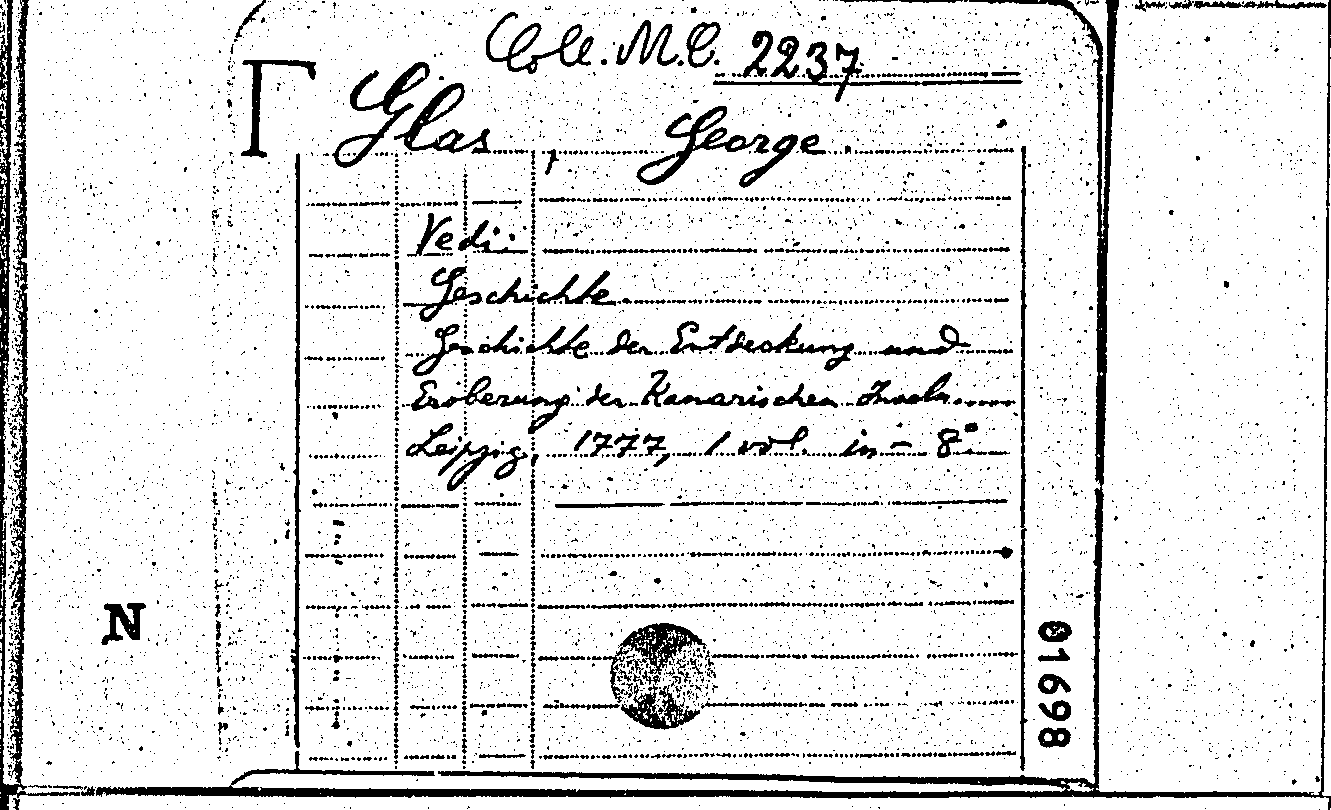 Coll. M.C. 2237
Glas, George.
Vedi:
Geschichte.
Geschichte der Entdeckung und
Eroberung der Kanarischen Inseln.....
Leipzig, 1777, 1 vol. in-8°.
N
01698